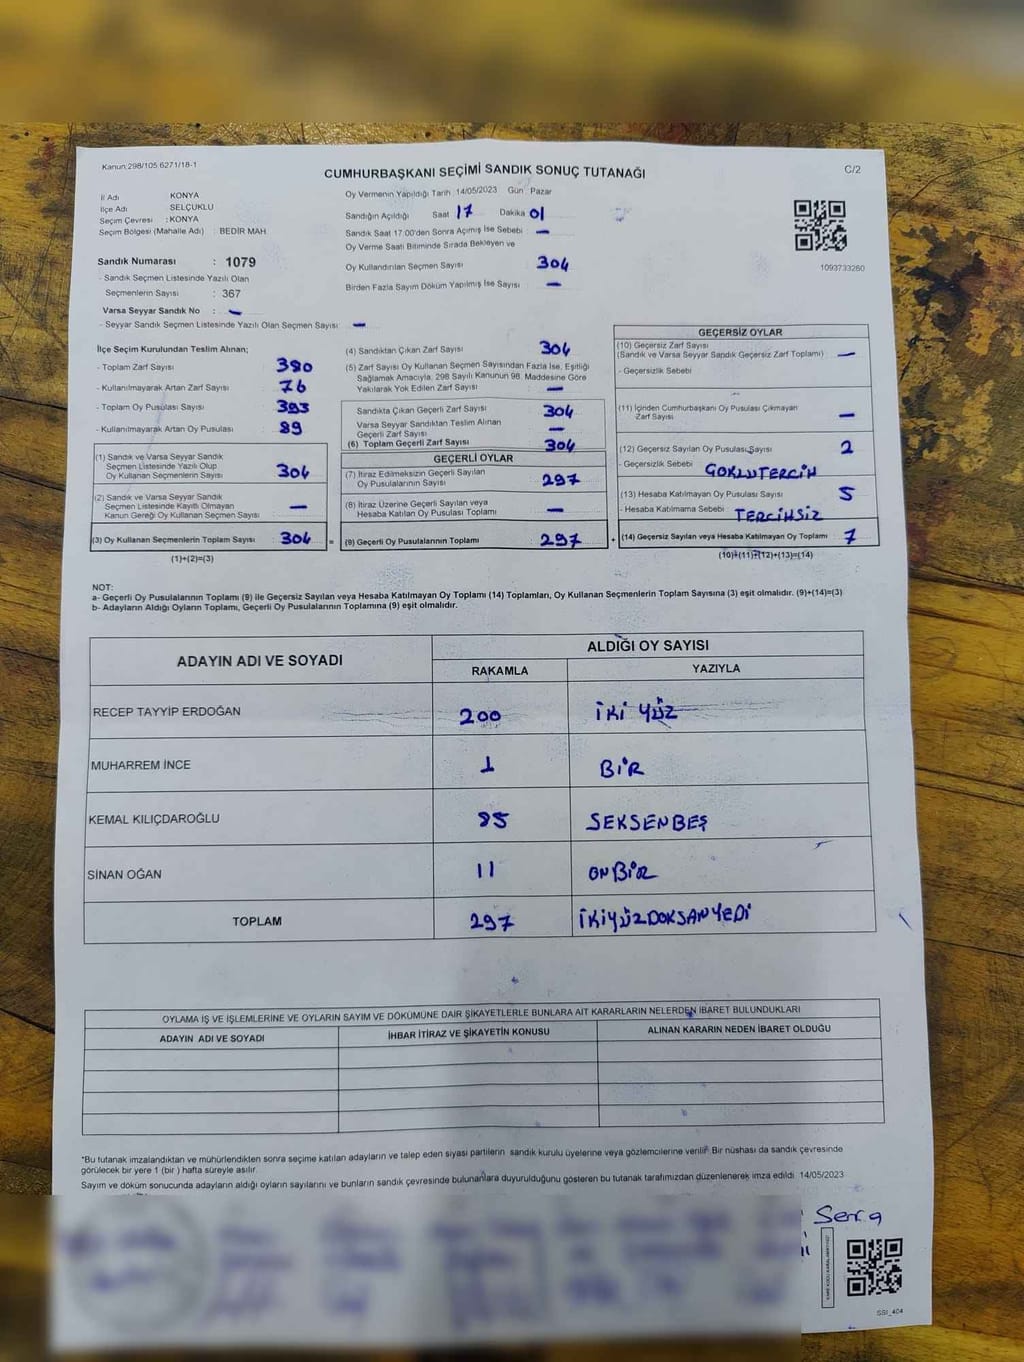 Kanun:298/105.6271/18-1
CUMHURBAŞKANI SEÇİMİ SANDIK SONUÇ TUTANAĞI
C/2
İl Adı KONYA
İlçe Adı SELÇUKLU
Seçim Çevresi : KONYA
Seçim Bölgesi (Mahalle Adı) : BEDİR MAH
Sandık Numarası : 1079
- Sandık Seçmen Listesinde Yazılı Olan
Seçmenlerin Sayısı : 367
Varsa Seyyar Sandık No : -
- Seyyar Sandık Seçmen Listesinde Yazılı Olan Seçmen Sayısı: -
Oy Vermenin Yapıldığı Tarih 14/05/2023 Gün : Pazar
Sandığın Açıldığı Saat 17 Dakika 01
Sandık Saat 17.00'den Sonra Açmış İse Sebebi : -
Oy Verme Saati Bitiminde Sırada Bekleyen ve
Oy Kullandırılan Seçmen Sayısı 304
Birden Fazla Sayım Döküm Yapılmış İse Sayısı : -
1093733260
İlçe Seçim Kurulundan Teslim Alınan;
- Toplam Zarf Sayısı 380
- Kullanılmayarak Artan Zarf Sayısı 76
- Toplam Oy Pusulası Sayısı 393
- Kullanılmayarak Artan Oy Pusulası 89
(1) Sandık ve Varsa Seyyar Sandık
Seçmen Listesinde Yazılı Olup
Oy Kullanan Seçmenlerin Sayısı 304
(2) Sandık ve Varsa Seyyar Sandık
Seçmen Listesinde Kayıtlı Olmayan
Kanun Gereği Oy Kullanan Seçmen Sayısı -
(3) Oy Kullanan Seçmenlerin Toplam Sayısı 304 =
(1)+(2)=(3)
(4) Sandıktan Çıkan Zarf Sayısı 304
(5) Zarf Sayısı Oy Kullanan Seçmen Sayısından Fazla İse, Eşitliği
Sağlamak Amacıyla; 298 Sayılı Kanunun 98. Maddesine Göre
Yakılarak Yok Edilen Zarf Sayısı -
Sandıkta Çıkan Geçerli Zarf Sayısı 304
Varsa Seyyar Sandıktan Teslim Alınan
Geçerli Zarf Sayısı -
(6) Toplam Geçerli Zarf Sayısı 304
GEÇERLİ OYLAR
(7) İtiraz Edilmeksizin Geçerli Sayılan
Oy Pusulalarının Sayısı 297
(8) İtiraz Üzerine Geçerli Sayılan veya
Hesaba Katılan Oy Pusulası Toplamı -
(9) Geçerli Oy Pusulalarının Toplamı 297 +
GEÇERSİZ OYLAR
(10) Geçersiz Zarf Sayısı
(Sandık ve Varsa Seyyar Sandık Geçersiz Zarf Toplamı) -
- Geçersizlik Sebebi
(11) İçinden Cumhurbaşkanı Oy Pusulası Çıkmayan
Zarf Sayısı -
(12) Geçersiz Sayılan Oy Pusulası Sayısı 2
- Geçersizlik Sebebi ÇOKLUTERCİH
(13) Hesaba Katılmayan Oy Pusulası Sayısı 5
- Hesaba Katılmama Sebebi TERCİHSİZ
(14) Geçersiz Sayılan veya Hesaba Katılmayan Oy Toplamı 7
(10)+(11)+(12)+(13)=(14)
NOT:
a- Geçerli Oy Pusulalarının Toplamı (9) ile Geçersiz Sayılan veya Hesaba Katılmayan Oy Toplamı (14) Toplamları, Oy Kullanan Seçmenlerin Toplam Sayısına (3) eşit olmalıdır. (9)+(14)=(3)
b- Adayların Aldığı Oyların Toplamı, Geçerli Oy Pusulalarının Toplamına (9) eşit olmalıdır.
ADAYIN ADI VE SOYADI ALDIĞI OY SAYISI
RAKAMLA YAZIYLA
RECEP TAYYİP ERDOĞAN 200 İKİ YÜZ
MUHARREM İNCE 1 BİR
KEMAL KILIÇDAROĞLU 85 SEKSENBEŞ
SİNAN OĞAN 11 ONBİR
TOPLAM 297 İKİYÜZDOKSANYEDİ
OYLAMA İŞ VE İŞLEMLERİNE VE OYLARIN SAYIM VE DÖKÜMÜNE DAİR ŞİKAYETLERLE BUNLARA AİT KARARLARIN NELERDEN İBARET BULUNDUKLARI
ADAYIN ADI VE SOYADI İHBAR İTİRAZ VE ŞİKAYETİN KONUSU ALINAN KARARIN NEDEN İBARET OLDUĞU
*Bu tutanak imzalandıktan ve mühürlendikten sonra seçime katılan adayların ve talep eden siyasi partilerin sandık kurulu üyelerine veya gözlemcilerine verilir. Bir nüshası da sandık çevresinde
görülecek bir yere 1 (bir) hafta süreyle asılır.
Sayım ve döküm sonucunda adayların aldığı oyların sayılarını ve bunların sandık çevresinde bulunanlara duyurulduğunu gösteren bu tutanak tarafımızdan düzenlenerek imza edildi 14/05/2023
Serra
SSI_404